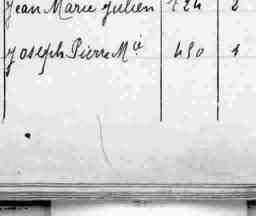 Jean Marie Julien 124 2
Joseph Pierre Mie 450 4